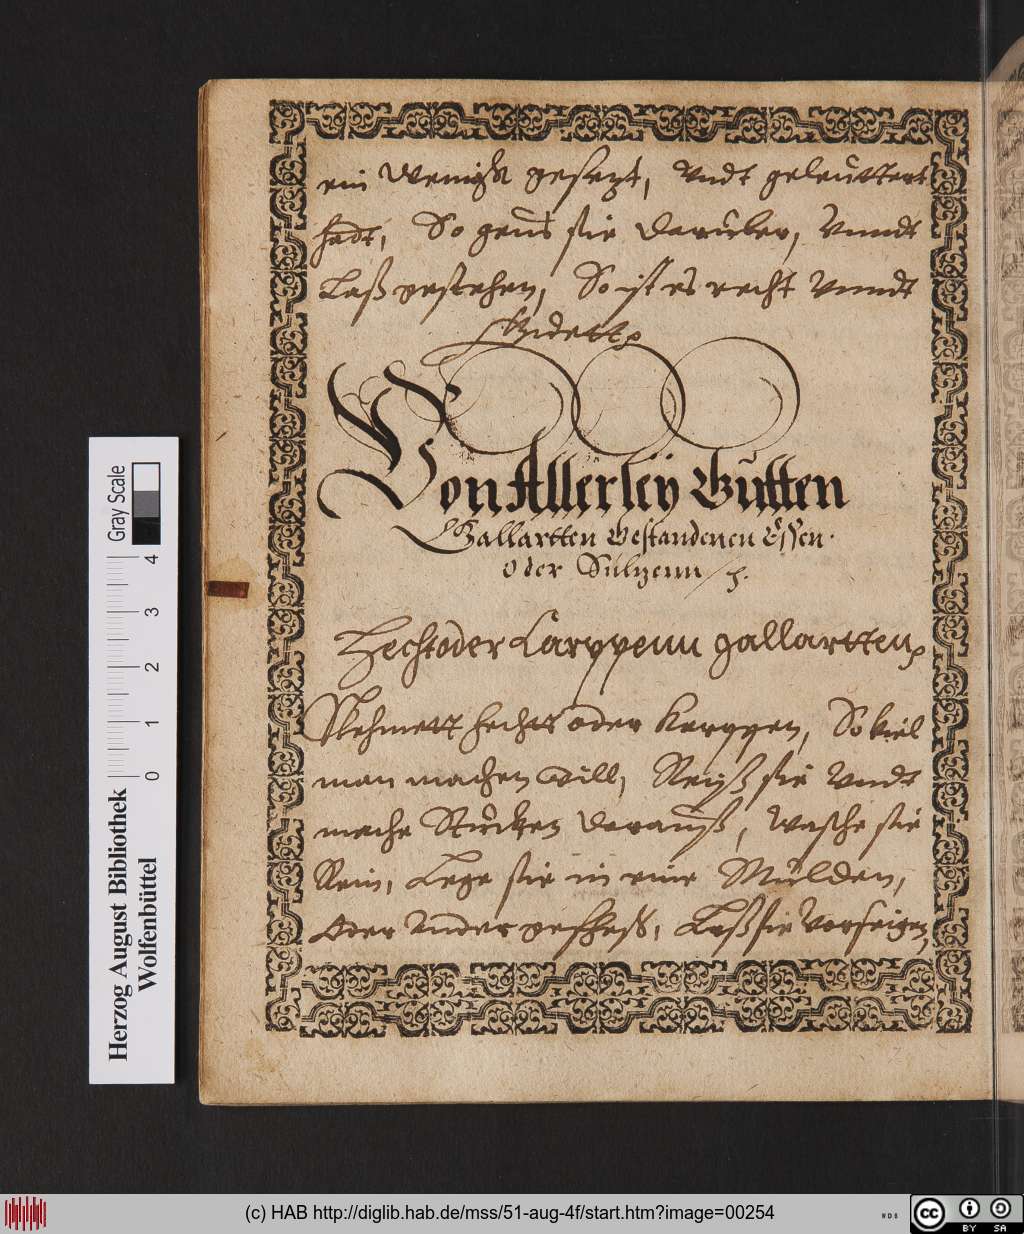 ein Wenigk gesezt, Vndt geleuttert
hadt, So geus sie darüber, Vnndt
Laß gestehen, So ist es recht Vnndt
Von Allerley Gutten
Gallartten Gestandenen Essen
oder Sultzenn
Hecht oder Karppenn gallartten
Nehmett hechtt oder Karppen, So viel
man machen Will, Reiß sie Vndt
mache Stücken darauß, Wasche sie
Rein, Lege sie in eine Mulden,
Oder Ander geschess, Laß sie Vorseigen
Gray Scale
4
3
2
1
0
Herzog August Bibliothek
Wolfenbüttel
(c) HAB http://diglib.hab.de/mss/51-aug-4f/start.htm?image=00254
WDB
cc
BY SA